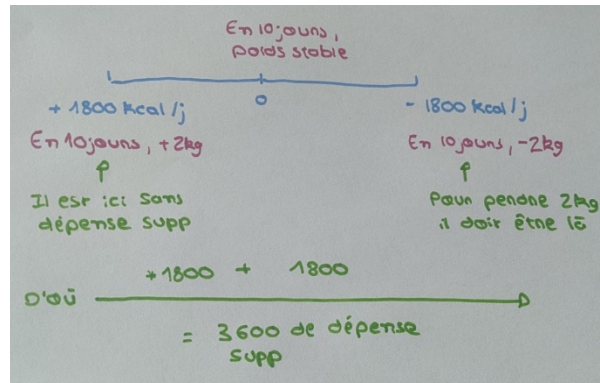 En 10 jours,
poids stable
0
+ 1800 kcal/j
- 1800 kcal/j
En 10 jours, +2kg
En 10 jours, -2kg
Il est ici sans
dépense supp
Pour perdre 2kg
il doit être là
+1800 + 1800
D'où
= 3600 de dépense
supp